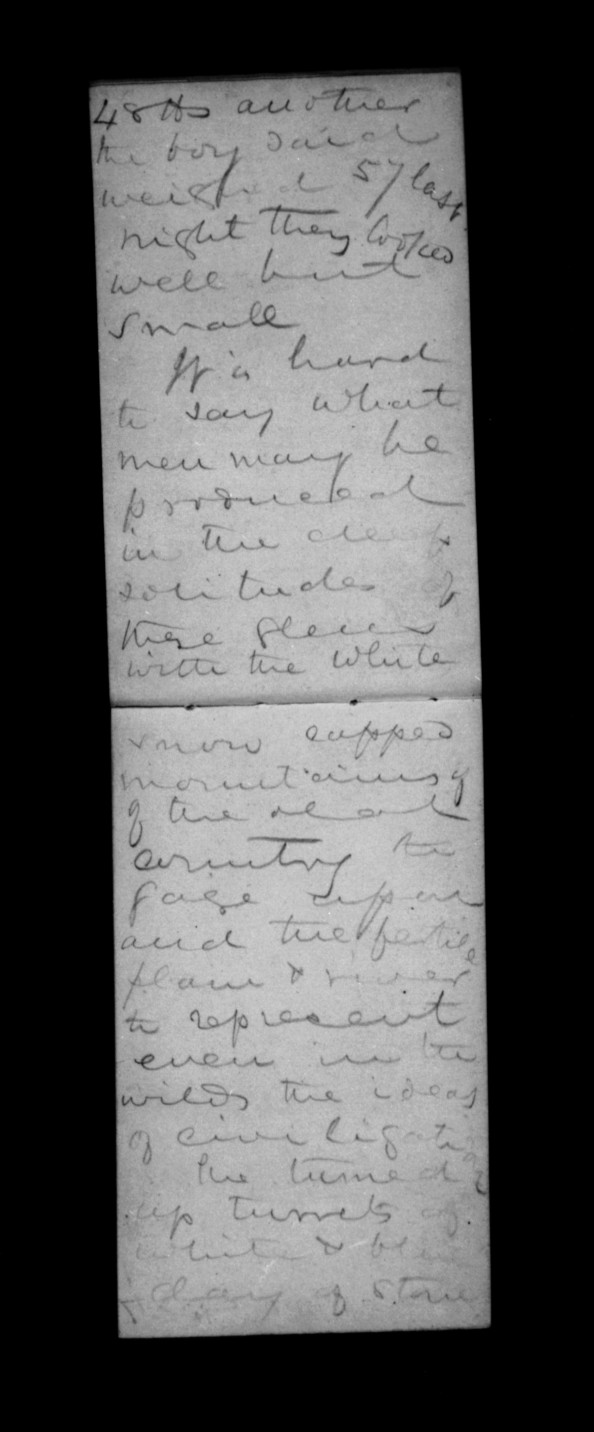 48 lbs another
the boy said
weighed 57 last
night they looked
well but
small
It is hard
to say what
men may be
produced
in the deep
solitudes of
these glens
with the white
snow capped
mountains of
of the
country to
gaze upon
and the fertile
plain & river
to represent
even in the
wilds the ideas
of civilization
The turned
up turrets of
white & blue
clay of stone